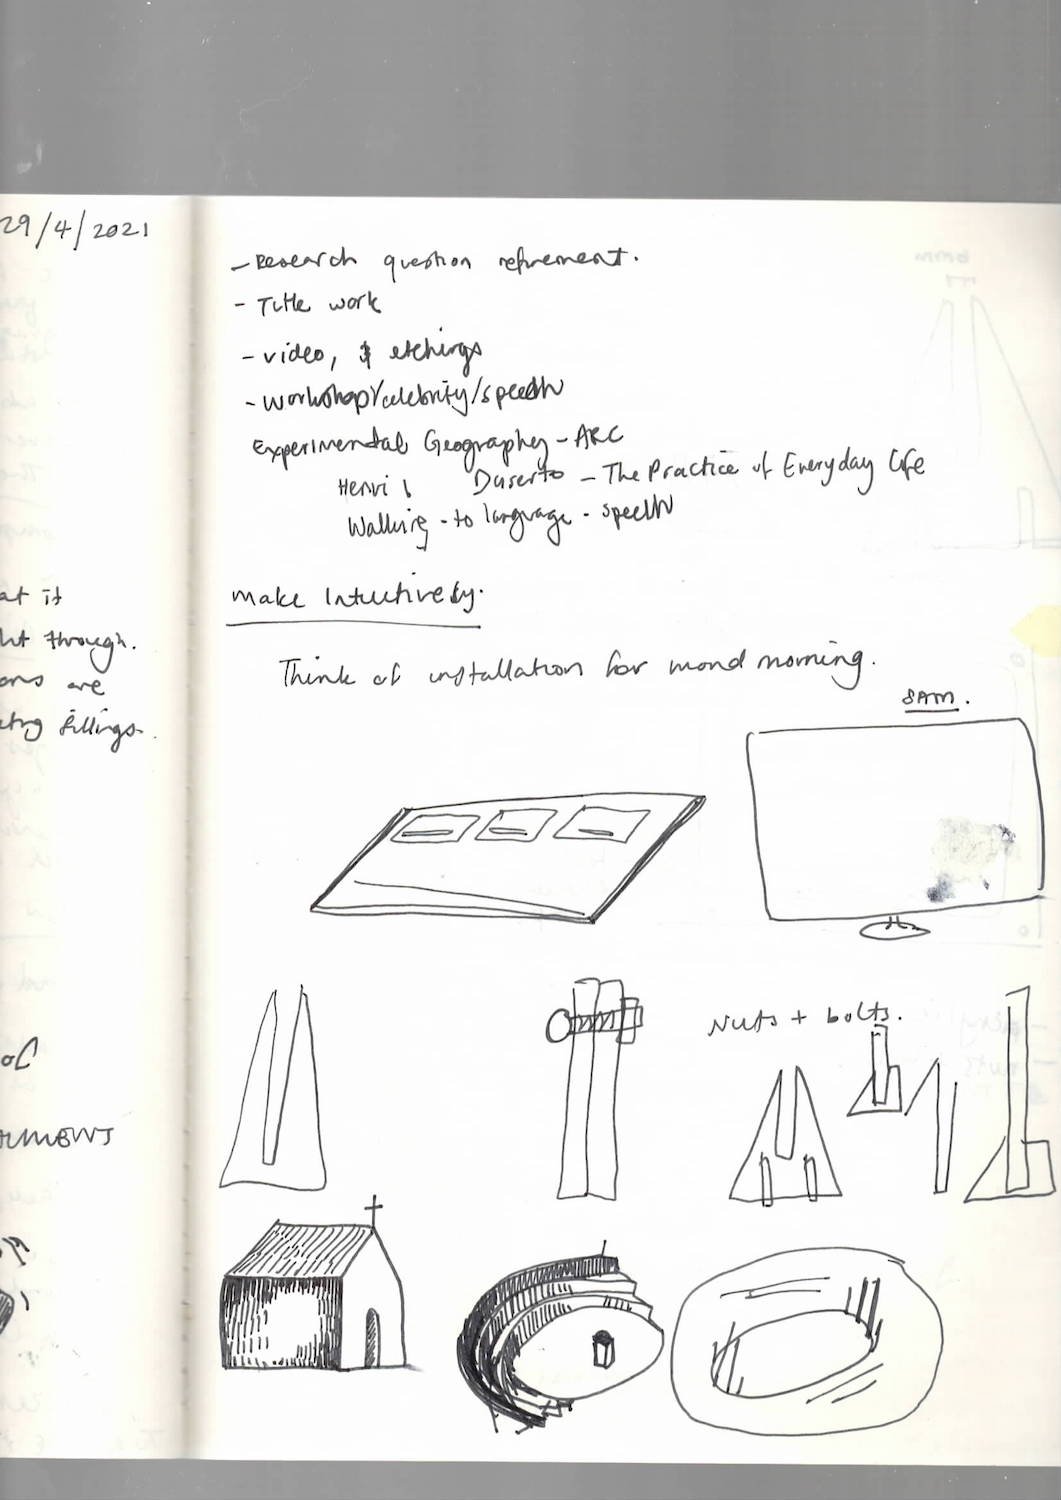 29/4/2021
- Research question refinement.
- Title work
- video, & etchings
- workshop/celebrity/speech
Experimental Geography - ARC
Henri L Duserto - The Practice of Everyday Life
Walking - to language - speech
make Intuitively.
Think of installation for mond morning.
SAM.
at it
ht through.
ons are
fillings.
Nuts + bolts.